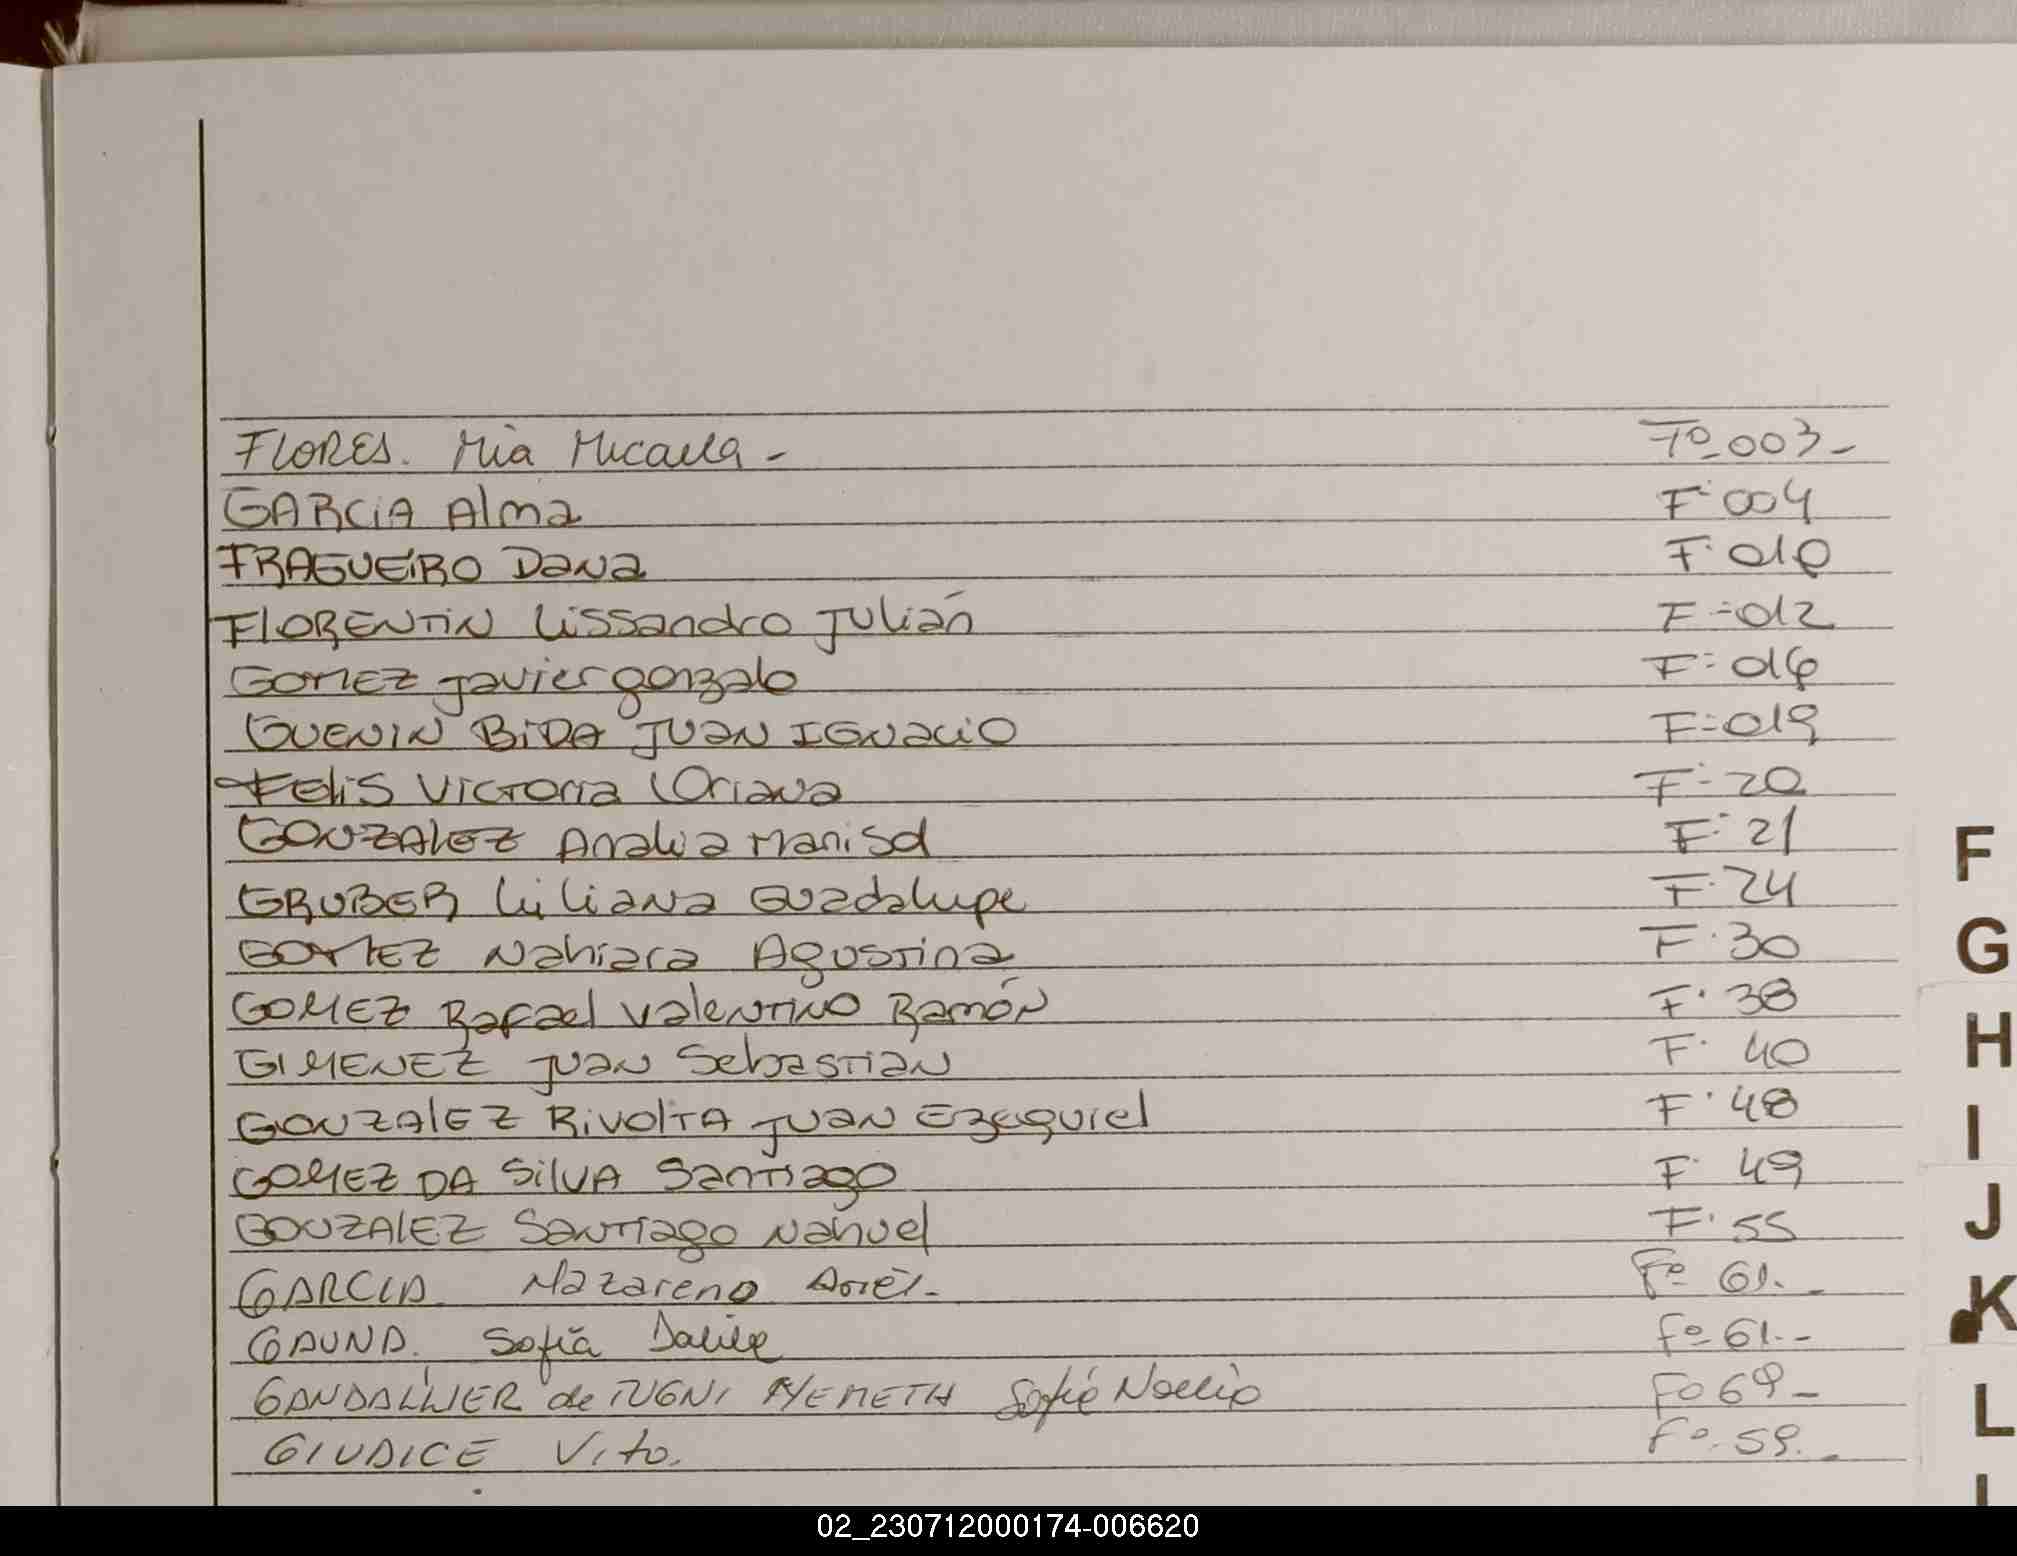 FLORES. Mia Micaela - Fº 003-
GARCIA Alma F: 004
FRAGUEIRO Dana F: 010
FLORENTIN Lissandro Julián F: 012
GOMEZ Javier gonzalo F: 016
GUENIN BIDA JUAN IGNACIO F: 019
FELIS VICTORIA Oriana F: 20
GONZALEZ Analia Marisol F: 21
GRUBER Liliana Guadalupe F: 24
GOMEZ Nahiara Agustina F: 30
GOMEZ Rafael Valentino Ramón F: 38
GIMENEZ Juan Sebastian F: 40
GONZALEZ RIVOLTA Juan Ezequiel F: 48
GOMEZ DA SILVA Santiago F: 49
GONZALEZ Santiago Nahuel F: 55
GARCIA Nazareno Ariel- Fº 61.-
GAUNA. Sofia Fº 61.-
de NEMETH Sofia Noelia Fº 69-
GIUDICE Vito. Fº 59.-
F
G
H
I
J
K
L
02_230712000174-006620